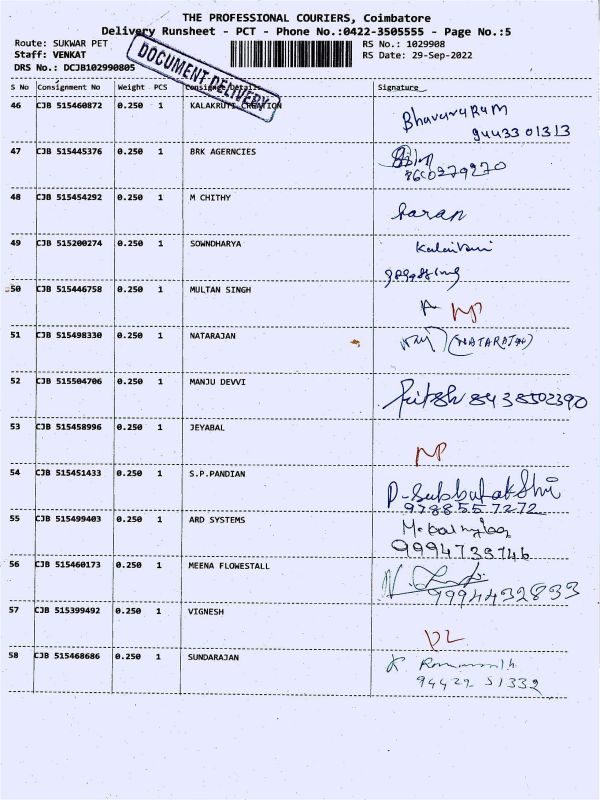 THE PROFESSIONAL COURIERS, Coimbatore
Delivery Runsheet - PCT - Phone No.:0422-3505555 - Page No.:5
Route: SUKWAR PET RS No.: 1029908
Staff: VENKAT RS Date: 29-Sep-2022
DRS No.: DCJB102990805
DOCUMENT DELIVERY
S No Consignment No Weight PCS Consignee Details Signature
46 CJB 515460872 0.250 1 KALAKRUTI CREATION
9443301313
47 CJB 515445376 0.250 1 BRK AGERNCIES
48 CJB 515454292 0.250 1 M CHITHY
49 CJB 515200274 0.250 1 SOWNDHARYA
50 CJB 515446758 0.250 1 MULTAN SINGH
NP
51 CJB 515498330 0.250 1 NATARAJAN
(NATARAJAN)
52 CJB 515504706 0.250 1 MANJU DEVVI
8438502390
53 CJB 515458996 0.250 1 JEYABAL
NP
54 CJB 515451433 0.250 1 S.P.PANDIAN
9788557272
55 CJB 515499403 0.250 1 ARD SYSTEMS
56 CJB 515460173 0.250 1 MEENA FLOWESTALL
9994432833
57 CJB 515399492 0.250 1 VIGNESH
DL
58 CJB 515468686 0.250 1 SUNDARAJAN
94422 51332